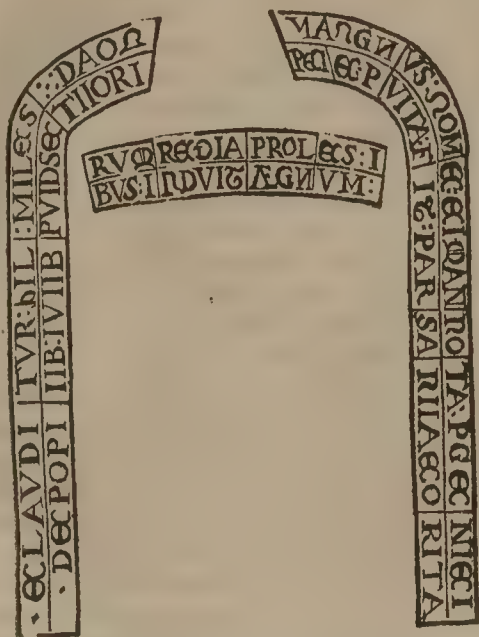 · ECLAVDITVR:hIL:MILES :·:DAON
· DEPOPIIIB:IVIIB PVIDSE TIIORI
RVM REDIA PROLES:I
BVS:INDVIT ÆGNVM:
MANGNVS:NOME:EIMANNOTA·PGENIEI
PECI E·P VITA·FIT:PARSARIIAECORITA